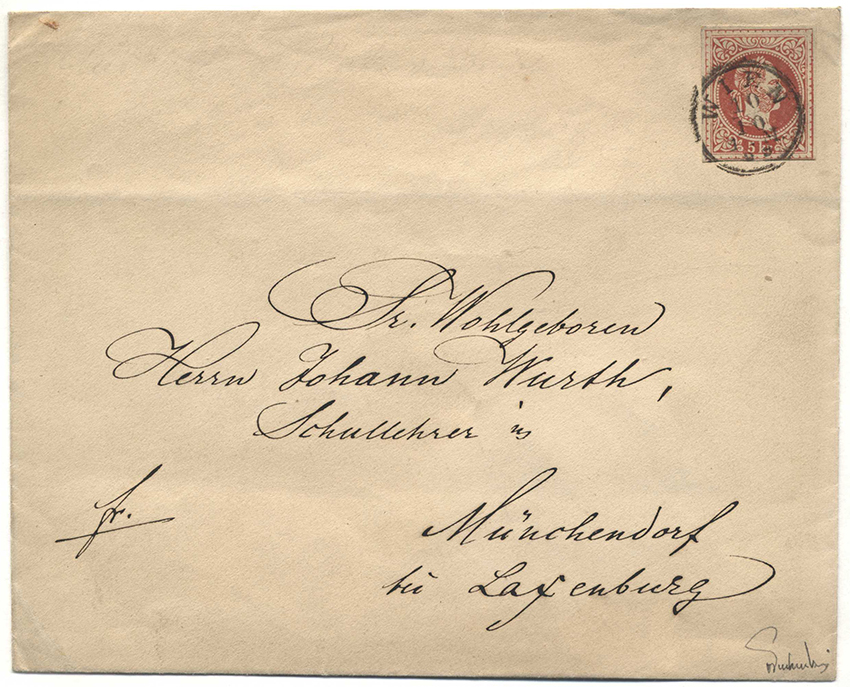 WIEN
10
10
5 kr
Sr. Wohlgeboren
Herrn Johann Wurth,
Schullehrer in
fr.
Münchendorf
bei Laxenburg